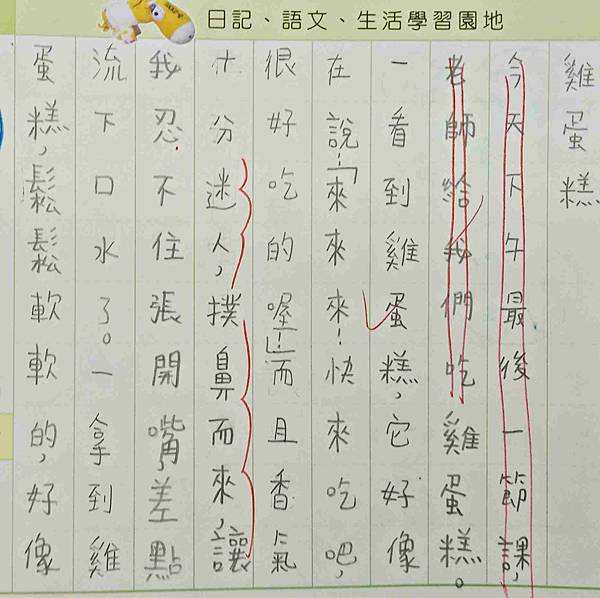 日記、語文、生活學習園地
雞蛋糕
今天下午最後一節課,
老師給我們吃雞蛋糕。
一看到雞蛋糕,它好像
在說!「來來來!快來吃吧,
很好吃的喔!」而且香氣
十分迷人,撲鼻而來,讓
我忍不住張開嘴,差點
流下口水了。一拿到雞
蛋糕,鬆鬆軟軟的,好像